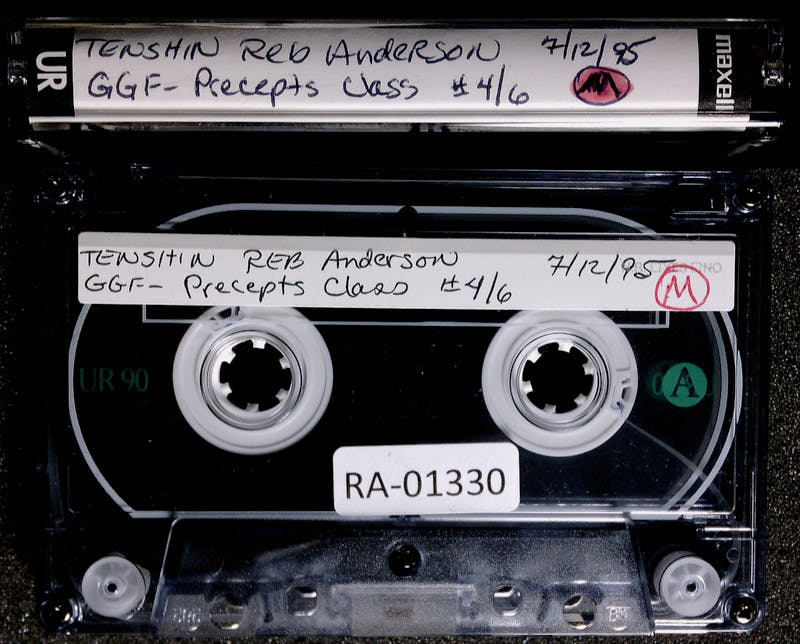 UR
TENSHIN Reb Anderson 7/12/95
GGF- Precepts Class #4/6
M
maxell
TENSHIN REB Anderson 7/12/95
GGF- Precepts Class #4/6
M
UR 90
A
RA-01330